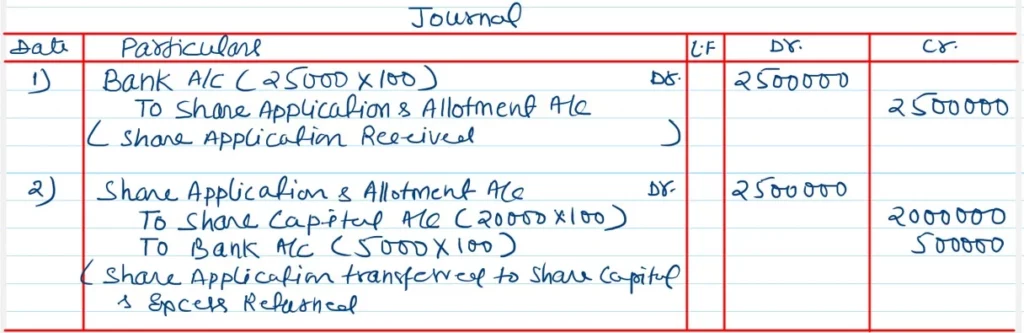 Journal
Date Particulars L.F Dr. Cr.
1) Bank A/C (25000 X 100) Dr. 2500000
To Share Application & Allotment A/c 2500000
( Share Application Received )
2) Share Application & Allotment A/c Dr. 2500000
To Share Capital A/c (20000 X 100) 2000000
To Bank A/C (5000 X 100) 500000
( Share Application transferred to Share Capital
& Excess Returned